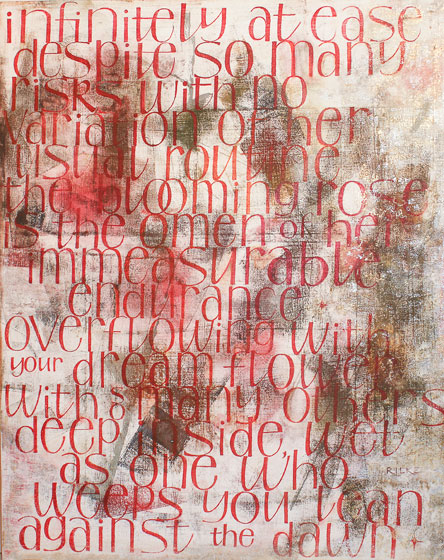 infinitely at ease
despite so many
risks with no
variation of her
usual routine
the blooming rose
is the omen of her
immeasurable
endurance
overflowing with
your dream flower
with so many others
deep inside, wet
as one who
RILKE
weeps you lean
against the dawn